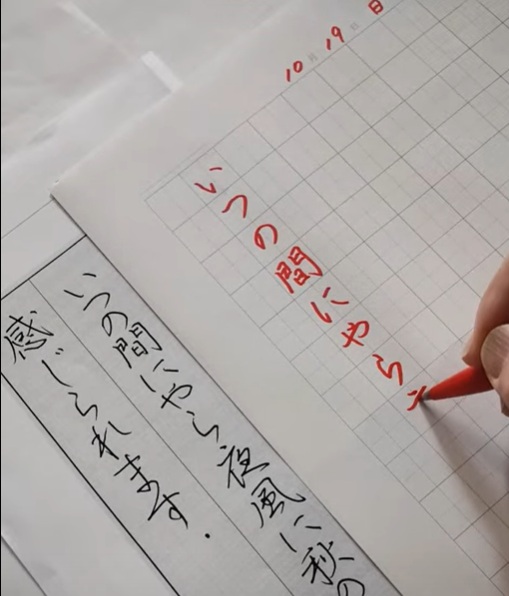 10月19日 日
いつの間にやら
いつの間にやら夜風に秋の
感じられます.